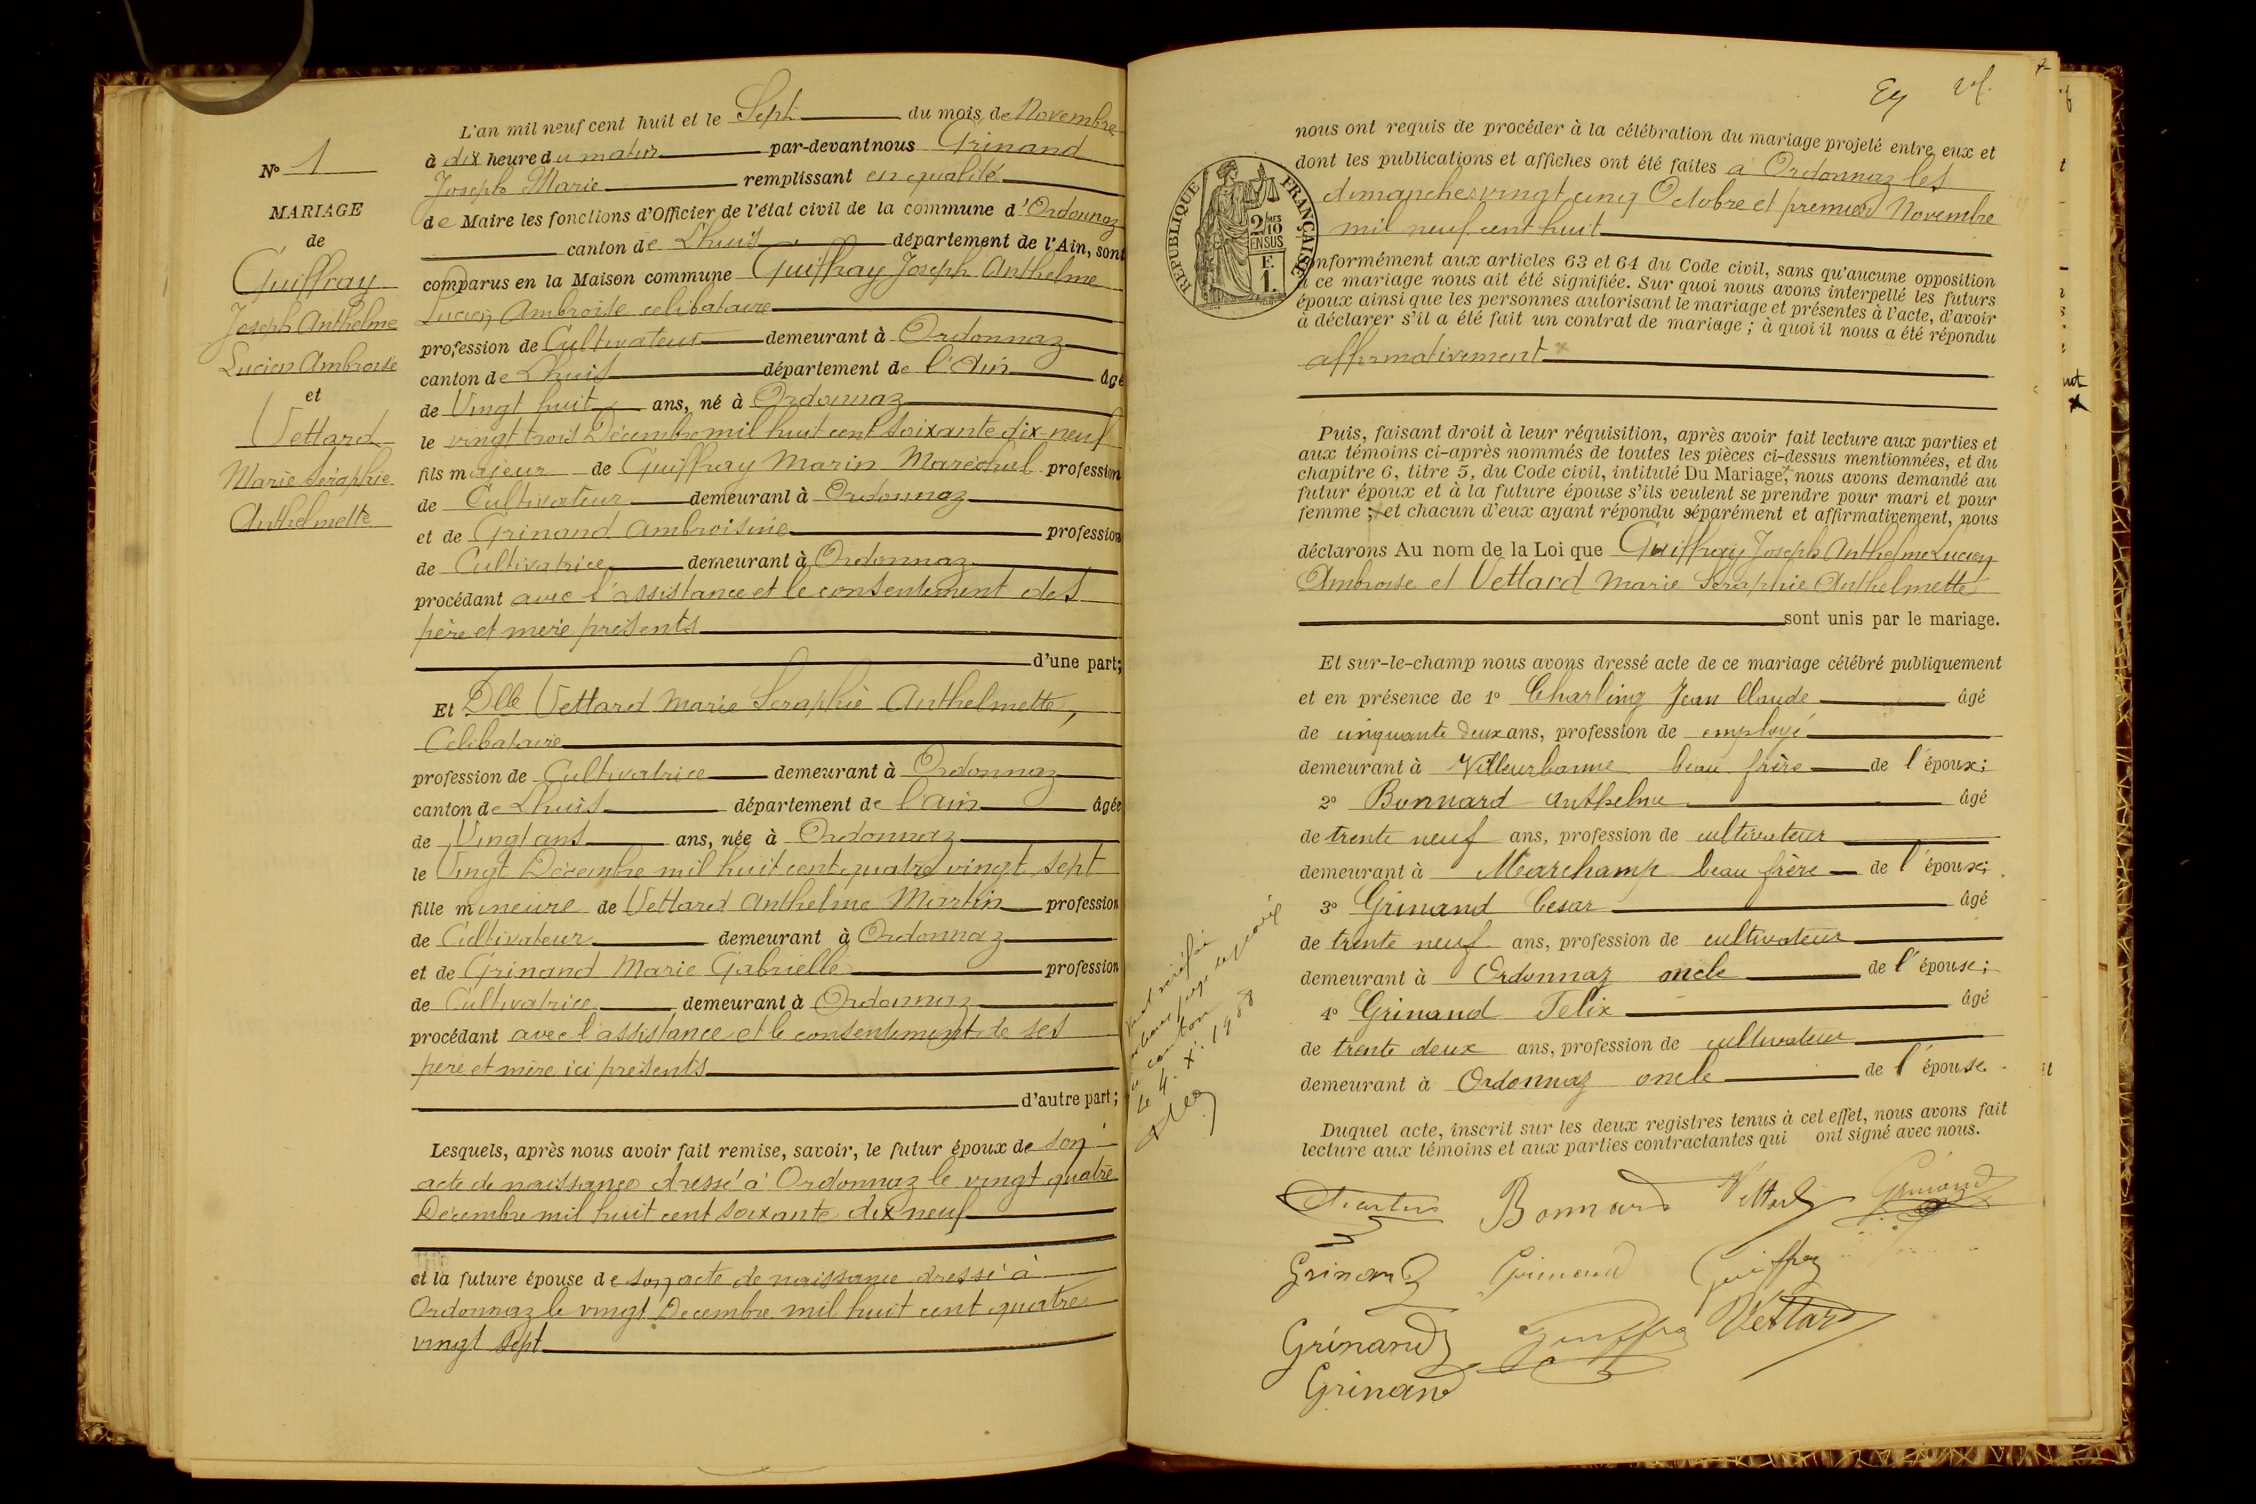 N° 1
MARIAGE
de
Guiffray
Joseph Anthelme
Lucien Ambroise
et
Vettard
Marie Séraphie
Anthelmette
L'an mil neuf cent huit et le Sept du mois de Novembre
à dix heure du matin par-devant nous Grinand
Joseph Marie remplissant en qualité
de Maire les fonctions d'Officier de l'état civil de la commune d'Ordonnaz
canton de Lhuis département de l'Ain, sont
comparus en la Maison commune Guiffray Joseph Anthelme
Lucien Ambroise celibataire
profession de Cultivateur demeurant à Ordonnaz
canton de Lhuis département de l'Ain âgé
de Vingt huit ans, né à Ordonnaz
le vingt trois Décembre mil huit cent soixante dix neuf
fils majeur de Guiffray Marin Maréchal profession
de Cultivateur demeurant à Ordonnaz
et de Grinand Ambroisine profession
de Cultivatrice demeurant à Ordonnaz
procédant avec l'assistance et le consentement des
père et mère présents
d'une part;
Et Dlle Vettard Marie Seraphie Anthelmette,
Celibataire
profession de Cultivatrice demeurant à Ordonnaz
canton de Lhuis département de l'ain âgée
de Vingt ans ans, née à Ordonnaz
le Vingt Décembre mil huit cent quatre vingt sept
fille mineure de Vettard Anthelme Martin profession
de Cultivateur demeurant à Ordonnaz
et de Grinand Marie Gabrielle profession
de Cultivatrice demeurant à Ordonnaz
procédant avec l'assistance et le consentement de ses
père et mère ici présents
d'autre part;
Lesquels, après nous avoir fait remise, savoir, le futur époux de son
acte de naissance dressé à Ordonnaz le vingt quatre
Décembre mil huit cent soixante dix neuf
et la future épouse de son acte de naissance dressé à
Ordonnaz le vingt Decembre mil huit cent quatre
vingt sept
nous ont requis de procéder à la célébration du mariage projeté entre eux et
dont les publications et affiches ont été faites a Ordonnaz les
dimanches vingt cinq Octobre et premier Novembre
mil neuf cent huit
RÉPUBLIQUE FRANÇAISE
2/10
EN SUS
F.
1.
onformément aux articles 63 et 64 du Code civil, sans qu'aucune opposition
à ce mariage nous ait été signifiée. Sur quoi nous avons interpellé les futurs
époux ainsi que les personnes autorisant le mariage et présentes à l'acte, d'avoir
à déclarer s'il a été fait un contrat de mariage; à quoi il nous a été répondu
affirmativement
Puis, faisant droit à leur réquisition, après avoir fait lecture aux parties et
aux témoins ci-après nommés de toutes les pièces ci-dessus mentionnées, et du
chapitre 6, titre 5, du Code civil, intitulé Du Mariage, nous avons demandé au
futur époux et à la future épouse s'ils veulent se prendre pour mari et pour
femme; et chacun d'eux ayant répondu séparément et affirmativement, nous
déclarons Au nom de la Loi que Guiffray Joseph Anthelme Lucien
Ambroise et Vettard Marie Seraphie Anthelmette
sont unis par le mariage.
Et sur-le-champ nous avons dressé acte de ce mariage célébré publiquement
et en présence de 1° Charling Jean Claude âgé
de cinquante deux ans, profession de employé
demeurant à Villeurbanne beau frère de l'époux;
2° Bonnard Anthelme âgé
de trente neuf ans, profession de cultivateur
demeurant à Marchamp beau frère de l'époux;
3° Grinand Cesar âgé
de trente neuf ans, profession de cultivateur
demeurant à Ordonnaz oncle de l'épouse;
4° Grinand Felix âgé
de trente deux ans, profession de cultivateur
demeurant à Ordonnaz oncle de l'épouse.
le 4. X. 1988
Duquel acte, inscrit sur les deux registres tenus à cet effet, nous avons fait
lecture aux témoins et aux parties contractantes qui ont signé avec nous.
Bonnard Vettard Grinand
Grinand Grinand Guiffray
Grinand Guiffray Vettard
Grinand